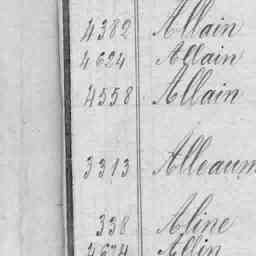 4382 Allain
4624 Allain
4558 Allain
3313 Alleaum
338 Aline
4674 Allin